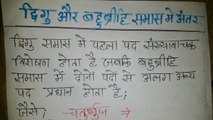 द्विगु और बहुव्रीहि समास में अंतर
द्विगु समास में पहला पद संख्यावाचक
विशेषण होता है जबकि बहुव्रीहि
समास में दोनो पदों से अलग अन्य
पद प्रधान होता है;
जैसे; चतुर्भुज →